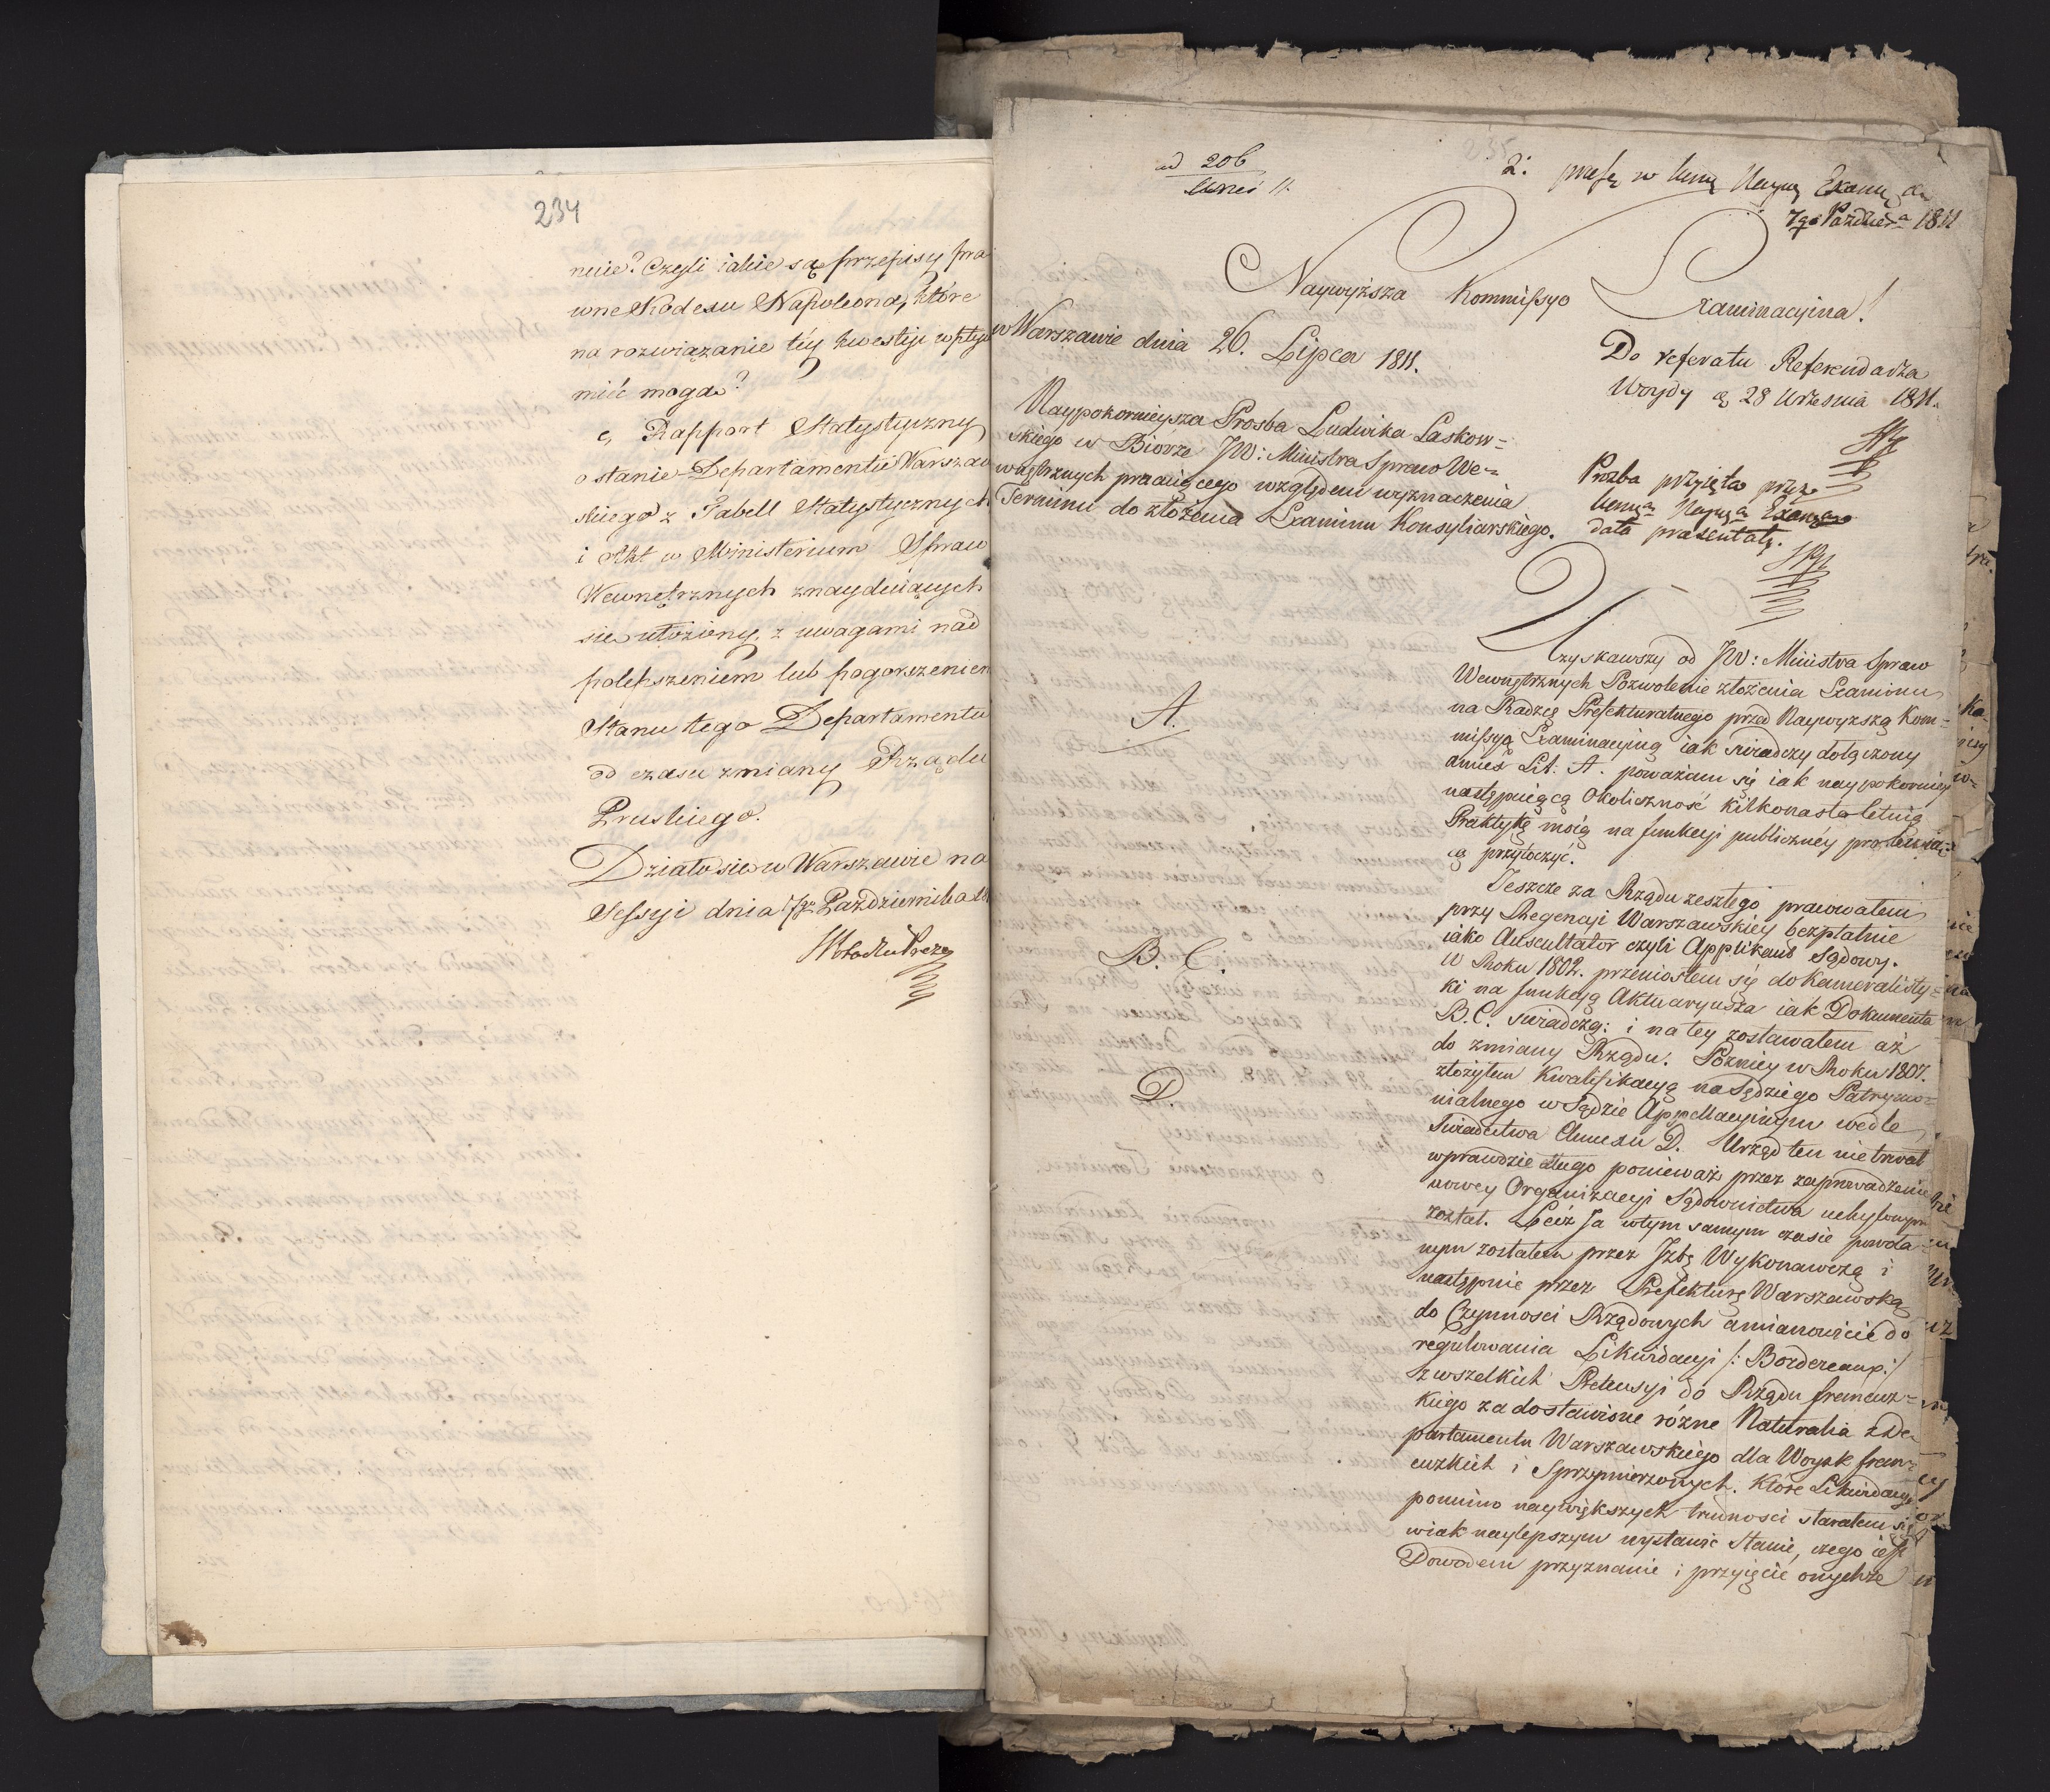 234
nnie? Czyli iakie są przepisy pra
wne Kodexu Napoleona, które
na rozwiązanie téy kwestyi wpływ
mieć mogą?
c, Rapport Statystyczny
o stanie Departamentu Warszaw
skiego z Tabell Statystycznych
i Akt w Ministerium Spraw
Wewnętrznych znayduiących
się ułożony, z uwagami nad
polepszeniem lub pogorszeniem
Stanu tego Departamentu
od czasu zmiany Rządu
Pruskiego.
Działo się w Warszawie na
Sessyi dnia 7go Października
235
ad 206
2.
7go Paźdźier. 1811
Naywyższa Kommissyo Examinacyina!
w Warszawie dnia 26. Lipca 1811.
Do referatu Referendarza
Woydy d. 28 Września 1811.
Naypokornieysza Prosba Ludwika Laskow-
skiego w Biórze JW: Ministra Spraw We-
wnętrznych pracuiącego względem wyznaczenia
Terminu do złożenia Examinu Konsyliarskiego.
Prozba przyięta przez
data prezentaty.
Uzyskawszy od JW: Ministra Spraw
Wewnętrznych Pozwolenie złożenia Examinu
na Radzcę Prefekturalnego przed Naywyższą Kom-
missyą Examinacyiną iak świadczy dołączony
annex Lit: A. poważam się iak naypokorniey
następuiącą Okoliczność kilkonasto letnią
Praktykę moią na funkcyi publiczney
cą przytoczyć.
A.
Jeszcze za Rządu zeszłego pracowałem
przy Regencyi Warszawskiey bezpłatnie
iako Auscultator czyli Applikant Sądowy.
W Roku 1802. przeniosłem się do Kameralisty-
ki na funkcyą Aktuaryusza iak Dokumenta
B.C. świadczą: i na tey zostawałem aż
do zmiany Rządu. Pózniey w Roku 1807.
złożyłem Kwalifikacyą na Sędziego Patrymo-
nialnego w Sądzie Appellacyinym wedle
Świadectwa Annexu D. Urząd ten nie trwał
wprawdzie długo ponieważ przez zaprowadzenie
nowey Organizacyi Sądownictwa uchylonym
został. Lecz Ja w tym samym czasie powoła-
nym zostałem przez Izbę Wykonawczą i
następnie przez Prefekturę Warszawską
do Czynności Rządowych a mianowicie do
regulowania Likwidacyi /: Bordereaux:/
z wszelkich Pretensyi do Rządu francuz-
kiego za dostawione różne Naturalia z De-
partamentu Warszawskiego dla Woysk fran-
cuzkich i Sprzymierzonych. Które Likwidacye
pomimo naywiększych trudności starałem się
w iak naylepszym wystawić Stanie, czego iest
Dowodem przyznanie i przyięcie onychże
B. C.
D.